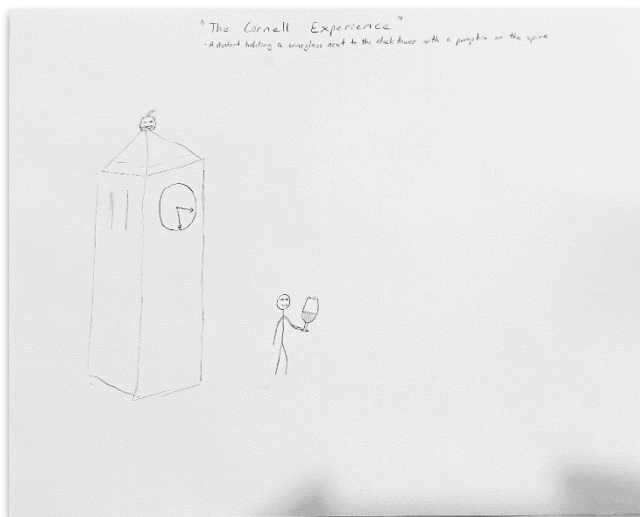 "The Cornell Experience"
- A student holding a wineglass next to the clocktower with a pumpkin on the spire